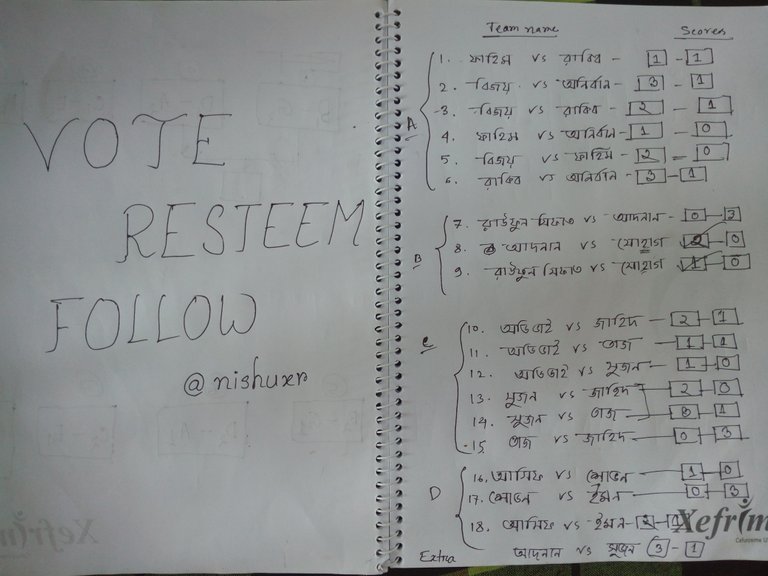 VOTE
RESTEEM
FOLLOW
@nishuxr
Team name Scores
A
1. ফাহিম vs রাকিব - 1 - 1
2. বিজয় vs অনির্বান - 3 - 1
3. বিজয় vs রাকিব - 2 - 1
4. ফাহিম vs অনির্বান - 1 - 0
5. বিজয় vs ফাহিম - 2 - 0
6. রাকিব vs অনির্বান - 3 - 1
B
7. রাউফুন সিফাত vs আদনান - 0 - 2
8. আদনান vs সোহাগ 2 - 0
9. রাউফুন সিফাত vs সোহাগ 1 - 0
C
10. অভিভাই vs জাহিদ - 2 - 1
11. অভিভাই vs তাজ - 1 - 1
12. অভিভাই vs সুজন - 1 - 0
13. সুজন vs জাহিদ 2 - 0
14. সুজন vs তাজ 1
15. তাজ vs জাহিদ - 0 - 3
D
16. আসিফ vs শোভন 1 - 0
17. শোভন vs ইমন 0 - 3
18. আসিফ vs ইমন - 2 - 1
Xefrim
Extra আদনান vs সুজন 3 - 1